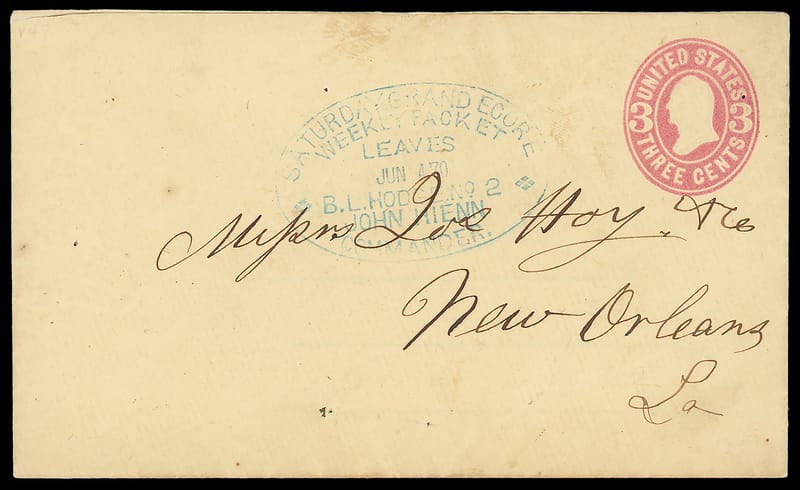 UNITED STATES
3 3
THREE CENTS
SATURDAY GRAND ECORE
WEEKLY PACKET
LEAVES
JUN 4 70
B.L. HODGE. No 2
JOHN HIENN
COMMANDER.
Messrs Jos Hoy & Co
New Orleans
La